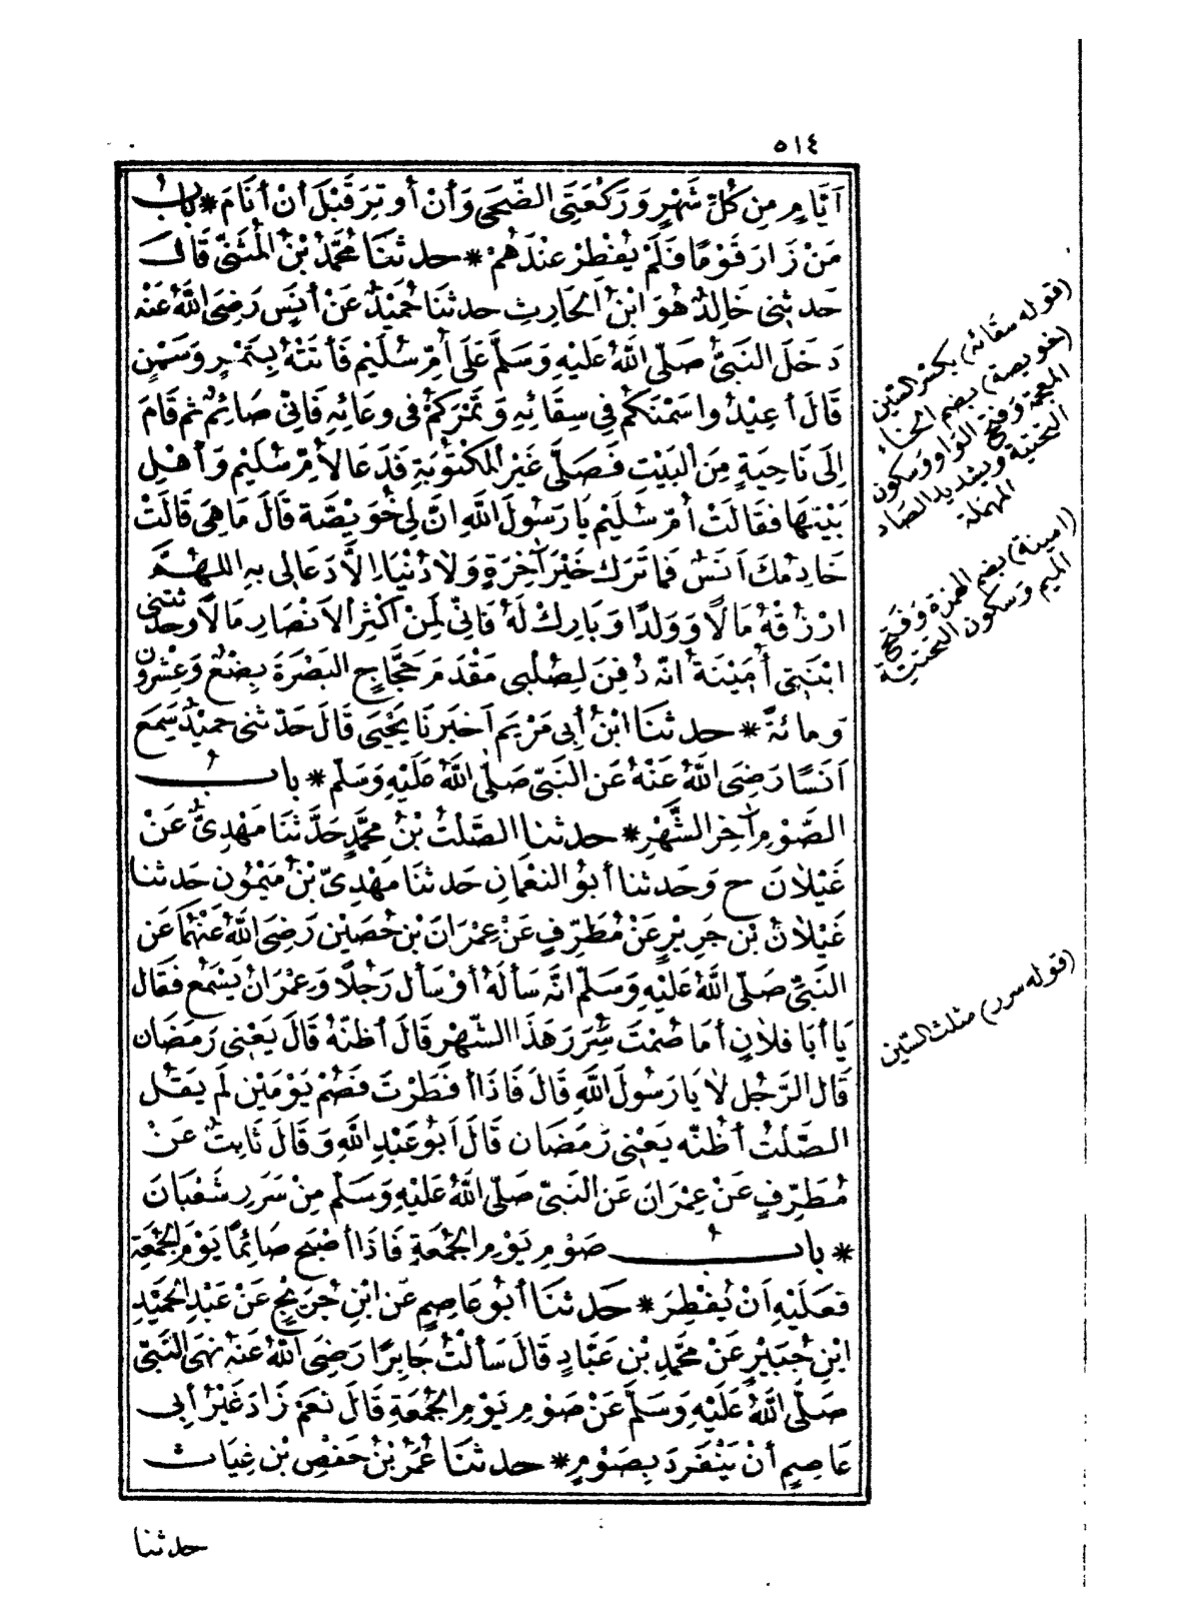 ٥١٤
اَيَّامٍ مِن كُلِّ شَهْرٍ وَرَكْعَتَى الضُّحَى وَأَنْ أُوتِرَ قَبْلَ أَنْ أَنَامَ * بابُ
مَنْ زَارَ قَوْمًا فَلَمْ يُفْطِرْ عِنْدَهُمْ * حدثنَا مُحَمَّدُ بْنُ الْمُثَنَّى قَالَ
حَدثَنِى خَالِدٌ هُوَ ابْنُ الحَارِثِ حدثنَا حُمَيْدٌ عَنْ أَنَسٍ رَضِىَ اللَّهُ عَنْهُ
دَخَلَ النَّبِىُّ صَلَّى اللَّهُ عَلَيْهِ وَسَلَّمَ عَلَى أُمِّ سُلَيْمٍ فَأَتَتْهُ بِتَمْرٍ وَسَمْنٍ
قَالَ أَعِيْدُوا سَمْنَكُمْ فِي سِقَائِهِ وَتَمْرَكُمْ فِى وِعَائِهِ فَاِنِّى صَائِمٌ ثم قَامَ
اِلَى نَاحِيَةٍ مِنَ البَيْتِ فَصَلَّى غَيْرَ المَكْتُوبَةِ فَدَعَا لأُمِّ سُلَيْمٍ وَأَهْلِ
بَيْتِهَا فقَالَتْ أُمُّ سُلَيْمٍ يَا رَسُولَ اللَّهِ اِنَّ لِي خُوَيْصَّة قَالَ مَا هِىَ قَالَتْ
خَادِمُكَ اَنَسٌ فَمَا تَرَكَ خَيْرَ آخِرَةٍ وَلاَ دُنْيَا اِلاَّ دَعَا لِى بهِ اللهُمَّ
ارْزُقْهُ مَالاً وَوَلَدًا وَبَارِكْ لَهُ فَاِنِّى لَمِنْ أكْثَرِ الاَنْصَارِ مَالاً وحدثتنى
ابْنَتِى أُمَيْنَةُ انَّهُ دُفِنَ لِصُلْبِى مَقْدَمَ حَجَّاجٍ البَصْرَةَ بِضْعٌ وَعِشْرُونَ
وَمائةٌ * حدثنَا ابْنُ أَبِى مَرْيَمَ اَخبَرنَا يَحْيَى قَالَ حَدّثنى حمَيْدٌ سَمِعَ
اَنَسًا رَضِىَ اللَّهُ عَنْهُ عَنِ النَّبِىّ صَلَّى اللَّهُ عَلَيْهِ وَسَلَّمَ * بابُ
الصَّوْمِ آخِرَ الشَّهْرِ * حدثنا الصَّلْتُ بْنُ محَمَّدٍ حَدَّثنَا مَهْدِىٌّ عَنْ
غَيْلاَنَ ح وَحَدثنا أَبُو النعْمَانِ حَدثنَا مَهْدِىّ بْنُ مَيْمُونٍ حَدثنا
غَيْلاَنُ بْن جَرِيْرٍ عَنْ مُطَرِّفٍ عَنْ عِمْرَانَ بْنِ حُصَيْنٍ رَضِىَ اللَّهُ عَنْهُمَا عَنِ
النَّبِىِّ صَلّى اللَّهُ عَلَيْهِ وَسَلَّمَ انَّهُ سَألَهُ أوْ سَأل رَجُلًا وَعِمْرَانُ يَسْمَع فَقَال
يَا أبَا فلاَنٍ أمَا صُمْتَ سُِرَرَ هَذَا الشَّهْرِ قَالَ أظنّهُ قَالَ يَعْنِى رَمَضَان
قَال الرَّجُل لاَ يَا رَسُولَ اللَّهِ قَالَ فَاِذَا أَفْطَرْتَ فَصُمْ يَوْمَيْنِ لَم يَقُلِ
الصَّلْتُ أظنّه يَعْنِى رَمَضَان قَالَ اَبُو عَبْدِ اللَّهِ وَقَالَ ثَابِتٌ عَنْ
مُطَرِّفٍ عَنْ عِمْرَانَ عَنِ النَّبِىّ صَلَّى اللَّهُ عَلَيْهِ وَسَلَّمَ مِنْ سَرَرِ شَعْبَانَ
* بابُ صَوْمِ يَوْمِ الجُمُعَةِ فَاِذَا أصْبَحَ صَائِمًا يَوْمَ الجُمُعَةِ
فعَلَيْهِ اَنْ يُفْطِرَ * حَدثنَا أَبُو عَاصِمٍ عَنِ ابْنِ جُرَيْجٍ عَنْ عَبْدِ الحَمِيْدِ
ابْنِ جُبَيْرٍ عَنْ محَمَّدِ بْنِ عَبَّادٍ قَالَ سَألْتُ جَابِرًا رَضِىَ اللَّهُ عَنهُ نهَى النَّبِىُّ
صَلَّى اللَّهُ عَلَيْهِ وَسَلَّمَ عَنْ صَوْمِ يَوْمِ الجُمُعَةِ قَالَ نَعَمْ زَادَ غَيْرُ أَبِى
عَاصِمٍ أَنْ يَنْفَرِدَ بِصَوْمٍ * حدثنَا عُمَرُ بْنُ حَفْصِ بْنِ غِيَاثٍ
حدثنا
(قوله سقائه) بكسر السّين
(خويصة) بضم الخاء
المعجمة وَفتح الوَاو وسكون
التحتية وتشديد الصَّاد
المهملة
(امينة) بضم الهمزة وَفتح
الميم وَسكون التحتية
(قوله سرر) مثلث السّين